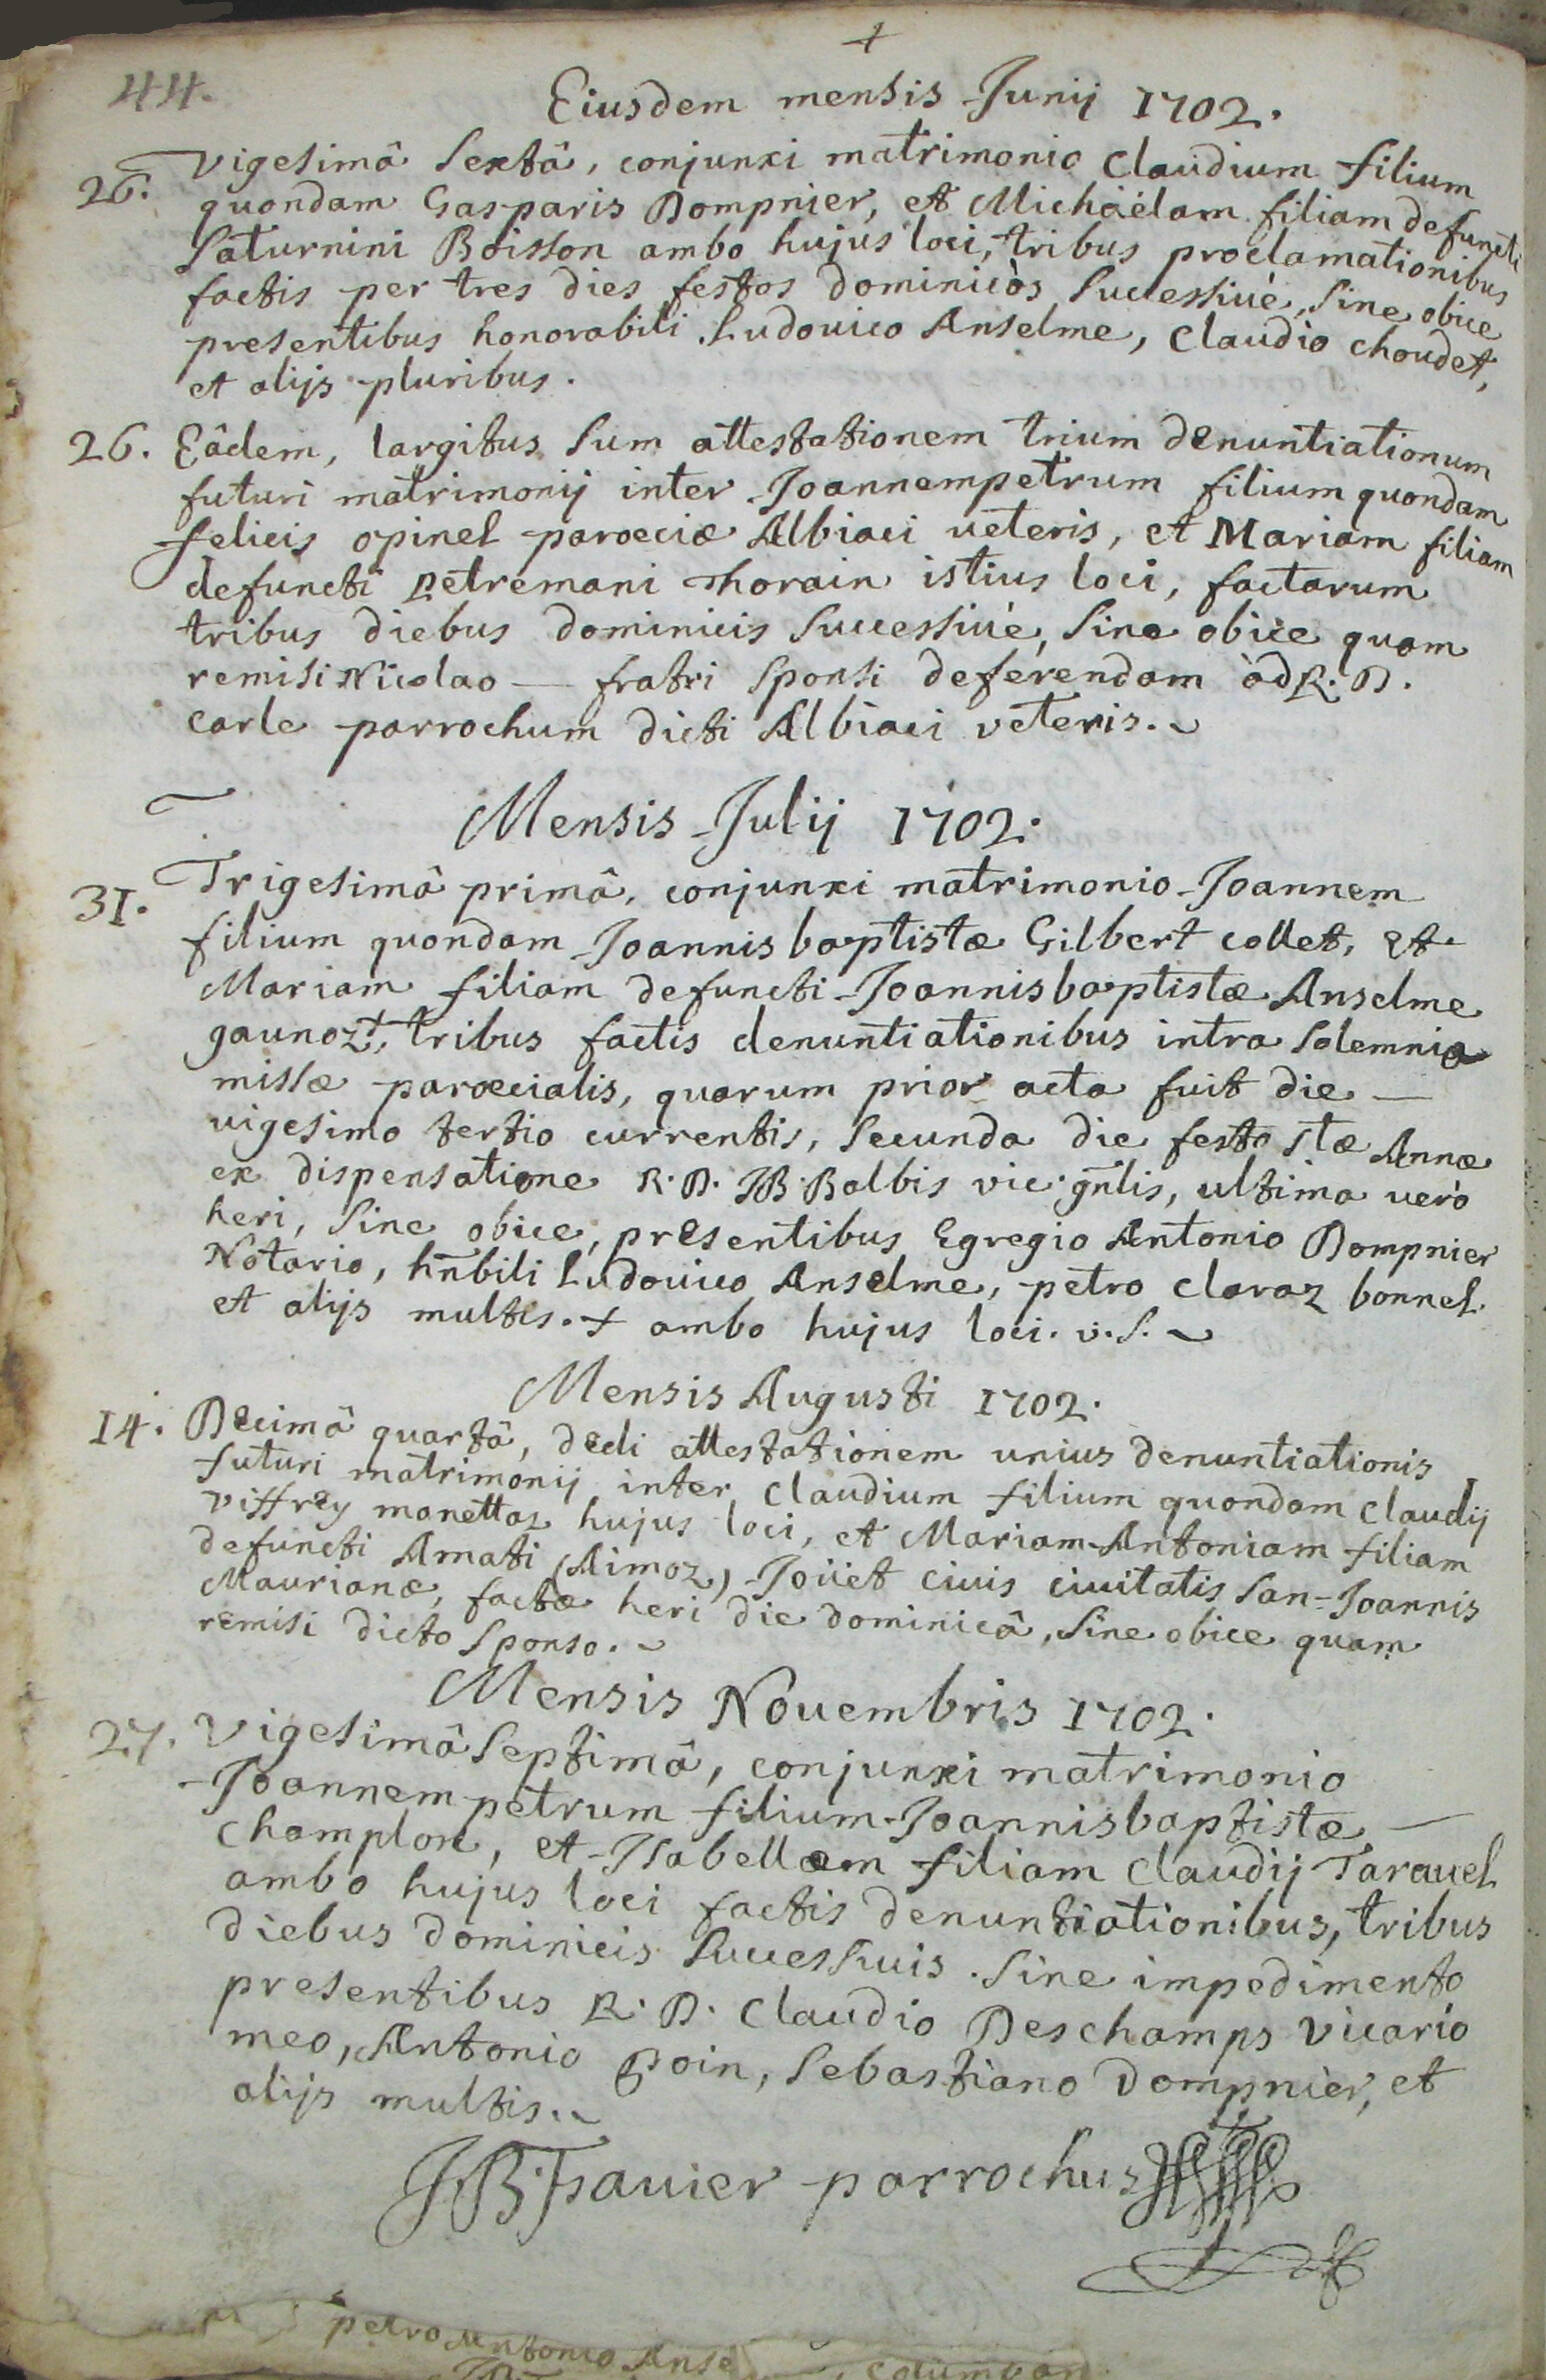 +
44.
Eiusdem mensis Junij 1702.
26. Vigesimâ Sextâ, conjunxi matrimonio Claudium filium
quondam Gasparis Dompnier, et Michäelam filiam defuncti
Saturnini Boisson ambo hujus loci, tribus proclamationibus
factis per tres dies festos dominicòs Successiué, Sine obice
presentibus honorabili Ludouico Anselme, Claudio choudet,
et alijs pluribus.
26. Eâdem, largitus Sum attestationem trium denuntiationum
futuri matrimonij inter Joannempetrum filium quondam
felicis opinel paroeciæ Albiaci ueteris, et Mariam filiam
defuncti petremani Thorain istius loci, factarum
tribus diebus dominicis Successiué, Sine obice quam
remisi Nicolao — fratri Sponsi deferendam àd R. D.
Carle parrochum dicti Albiaci veteris.
Mensis Julij 1702.
31. Trigesimâ primâ, conjunxi matrimonio Joannem
filium quondam Joannis baptistæ Gilbert collet, et
Mariam filiam defuncti Joannisbaptistæ Anselme
gaunoz+, tribus factis denuntiationibus intra Solemnia
missæ paroecialis, quarum prior acta fuit die —
uigesimo tertio currentis, Secunda die festo stæ Annæ
ex dispensatione R. D. JB. Balbis vic. gn̄lis, ultima uerò
heri, Sine obice, presentibus Egregio Antonio Dompnier
Notario, hn̄bili Ludouico Anselme, petro claraz bonnel
et alijs multis. + ambo hujus loci. v. S.
Mensis Augusti 1702.
14. Decimâ quartâ, dedi attestationem unius denuntiationis
futuri matrimonij inter Claudium filium quondam Claudij
Viffrey manettaz hujus loci, et Mariam-Antoniam filiam
defuncti Amati (Aimoz) Joüet ciuis ciuitatis San=Joannis
Maurianæ, factæ heri die dominicâ, Sine obice quam
remisi dicto Sponso.
Mensis Nouembris 1702.
27. Vigesimâ Septimâ, conjunxi matrimonio
Joannempetrum filium Joannisbaptistæ —
Champlon, et Isabellam filiam Claudij Tarauel
ambo hujus loci factis denuntiationibus, tribus
diebus dominicis Successiuis. Sine impedimento
presentibus R. D. Claudio Deschamps Vicario
meo, Antonio Poin, Sebastiano Dompnier, et
alijs multis.
JB. Trauier parrochus
petro Antonio Anse